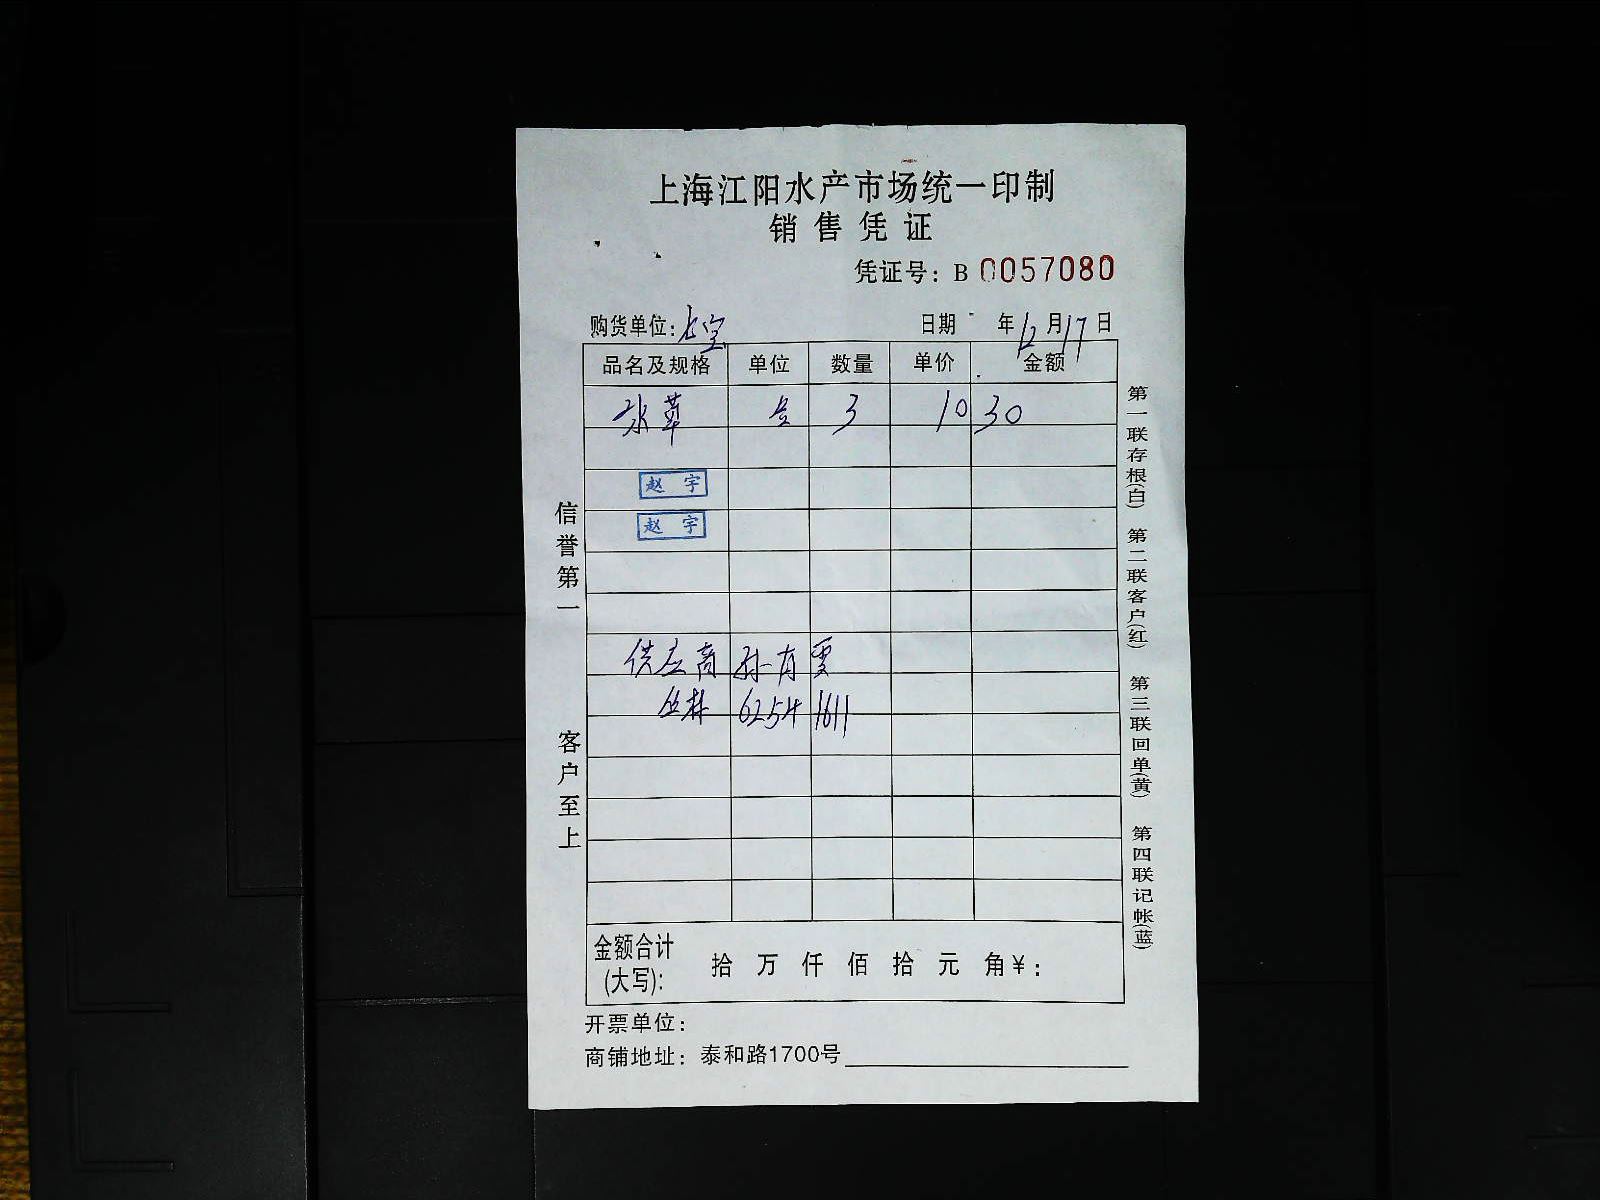 上海江阳水产市场统一印制
销售凭证
凭证号：B 0057080
购货单位：七宝 日期 年12月17日
品名及规格 单位 数量 单价 金额
水草 3 10 30
赵宇
赵宇
供应商 孙有
6254 1611
金额合计(大写)： 拾 万 仟 佰 拾 元 角 ¥：
开票单位：
商铺地址：泰和路1700号
信誉第一 客户至上
第一联存根(白) 第二联客户(红) 第三联回单(黄) 第四联记帐(蓝)